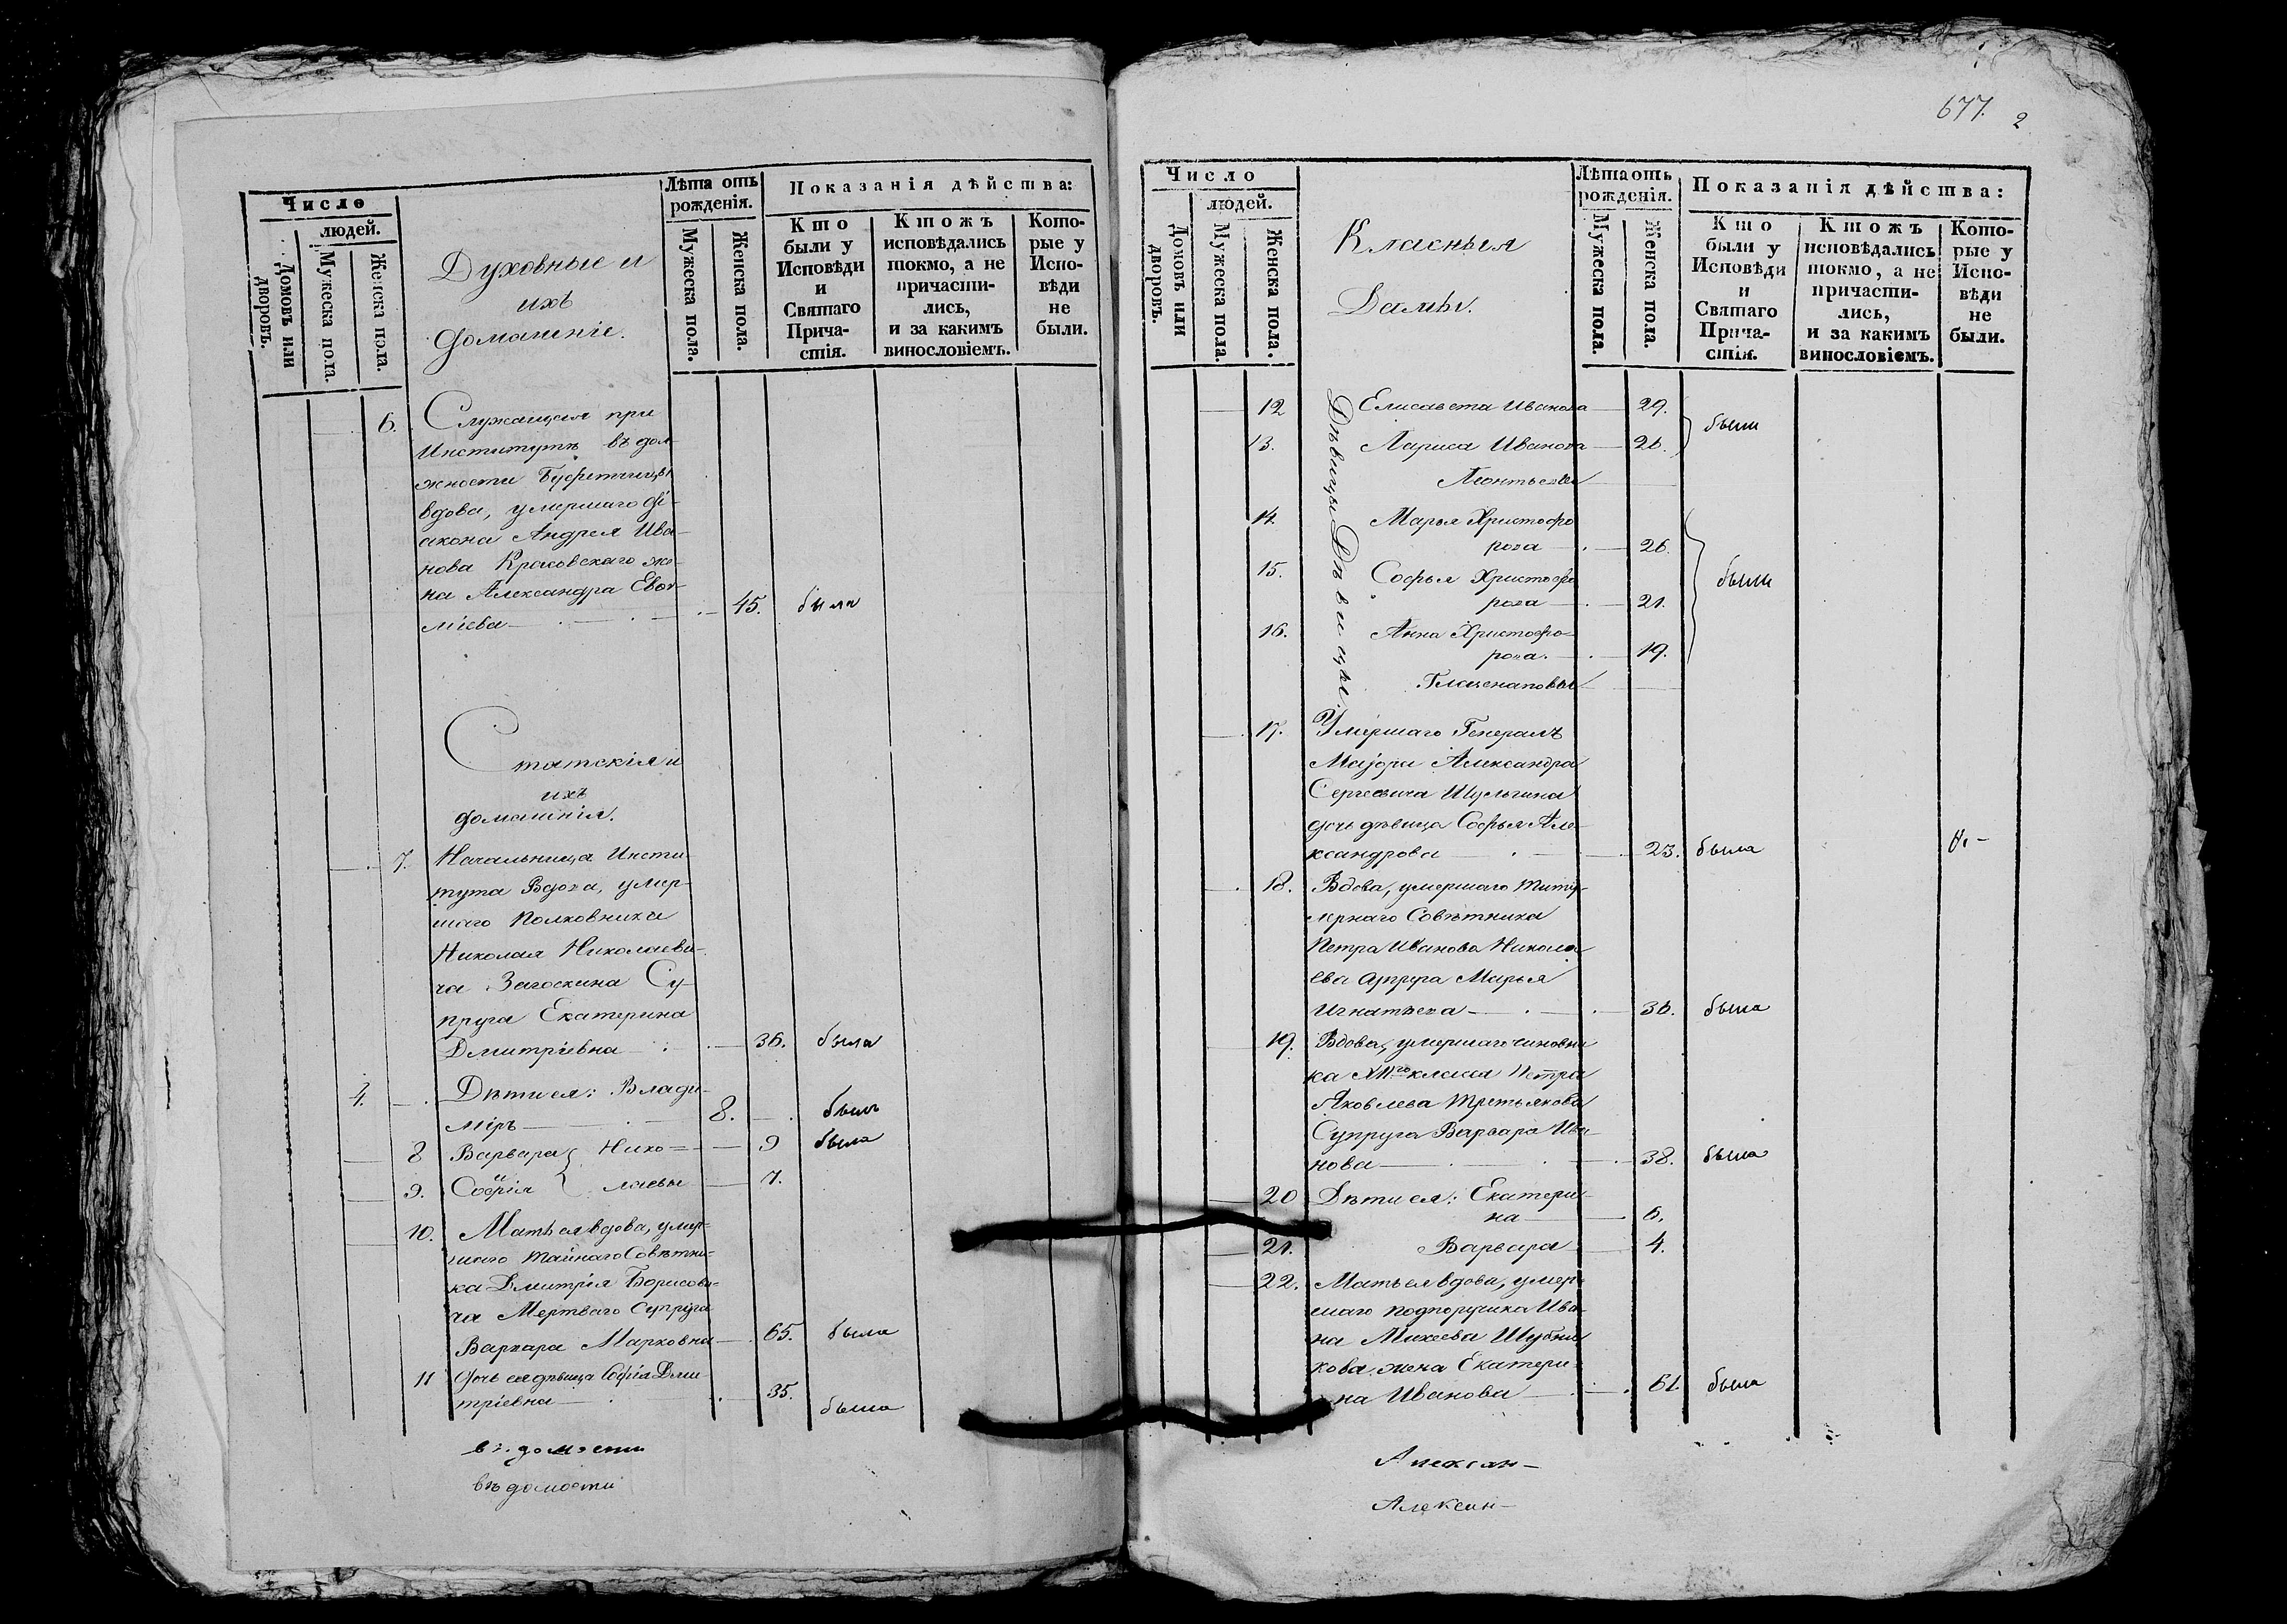 Число
людей.
Домовъ или дворовъ.
Мужеска пола.
Женска пола.
Духовные и
ихъ
домашніе.
Лѣта отъ
рожденія.
Мужеска пола.
Женска пола.
Показанія дѣйства:
Кто
были у
Исповѣди
и
Святаго
Прича-
стія.
Ктожъ
исповѣдались
токмо, а не
причасти-
лись,
и за какимъ
винословіемъ.
Кото-
рые у
Испо-
вѣди
не
были.
6. Служащая при
Институтѣ въ дол-
жности Буфетчицы
вдова, умершаго Ді-
акона Андрея Ива-
нова Красовскаго же-
на Александра Евѳи-
міева 45. была
Статскія и
ихъ
домашнія.
7. Начальница Инсти-
тута Вдова, умер-
шаго Полковника
Николая Николаеви-
ча Загоскина Су-
пруга Екатерина
Дмитріевна 36. была
4. Дѣти ея: Влади-
міръ 8. былъ
8 Варвара Нико= 9 была
9. Софія лаевы 7.
10. Мать ея вдова, умер-
шаго Тайнаго Совѣтни-
ка Дмитрія Борисови-
ча Мертваго Супруга
Варвара Марковна 65. была
11 Дочь ея дѣвица Софія Дми-
тріевна 35. была
вѣдомости
вѣдомости
677. 2
Число
людей.
Домовъ или дворовъ.
Мужеска пола.
Женска пола.
Класныя
Дамы.
Лѣта отъ
рожденія.
Мужеска пола.
Женска пола.
Показанія дѣйства:
Кто
были у
Исповѣди
и
Святаго
Прича-
стія.
Ктожъ
исповѣдались
токмо, а не
причасти-
лись,
и за какимъ
винословіемъ.
Кото-
рые у
Испо-
вѣди
не
были.
Дѣвицы
12 Елисавета Иванова 29.
были
13. Лариса Иванова 26.
Леонтьевы
Дѣвицы
14. Марья Христофо
рова 26.
15. Софья Христофо
рова 21.
были
16. Анна Христофо-
рова. 19.
Глазенаповы
17. Умершаго Генералъ
Маіора Александра
Сергеевича Шульгина
дочь дѣвица Софья Але-
ксандрова 23. была
18. Вдова, умершаго Титу-
лярнаго Совѣтника
Петра Иванова Никола
ева супруга Марья
Игнатьева 36. была
19. Вдова, умершаго чиновни
ка XIIго класса Петра
Яковлева Третьякова
Супруга Варвара Ива-
нова 38. была
20 Дѣти ея: Екатери-
на 6.
21. Варвара 4.
22. Мать ея вдова, умер-
шаго Подпоручика Ива-
на Михеева Шубни
кова жена Екатери-
на Иванова 61. была
Алексан-
Алексан-